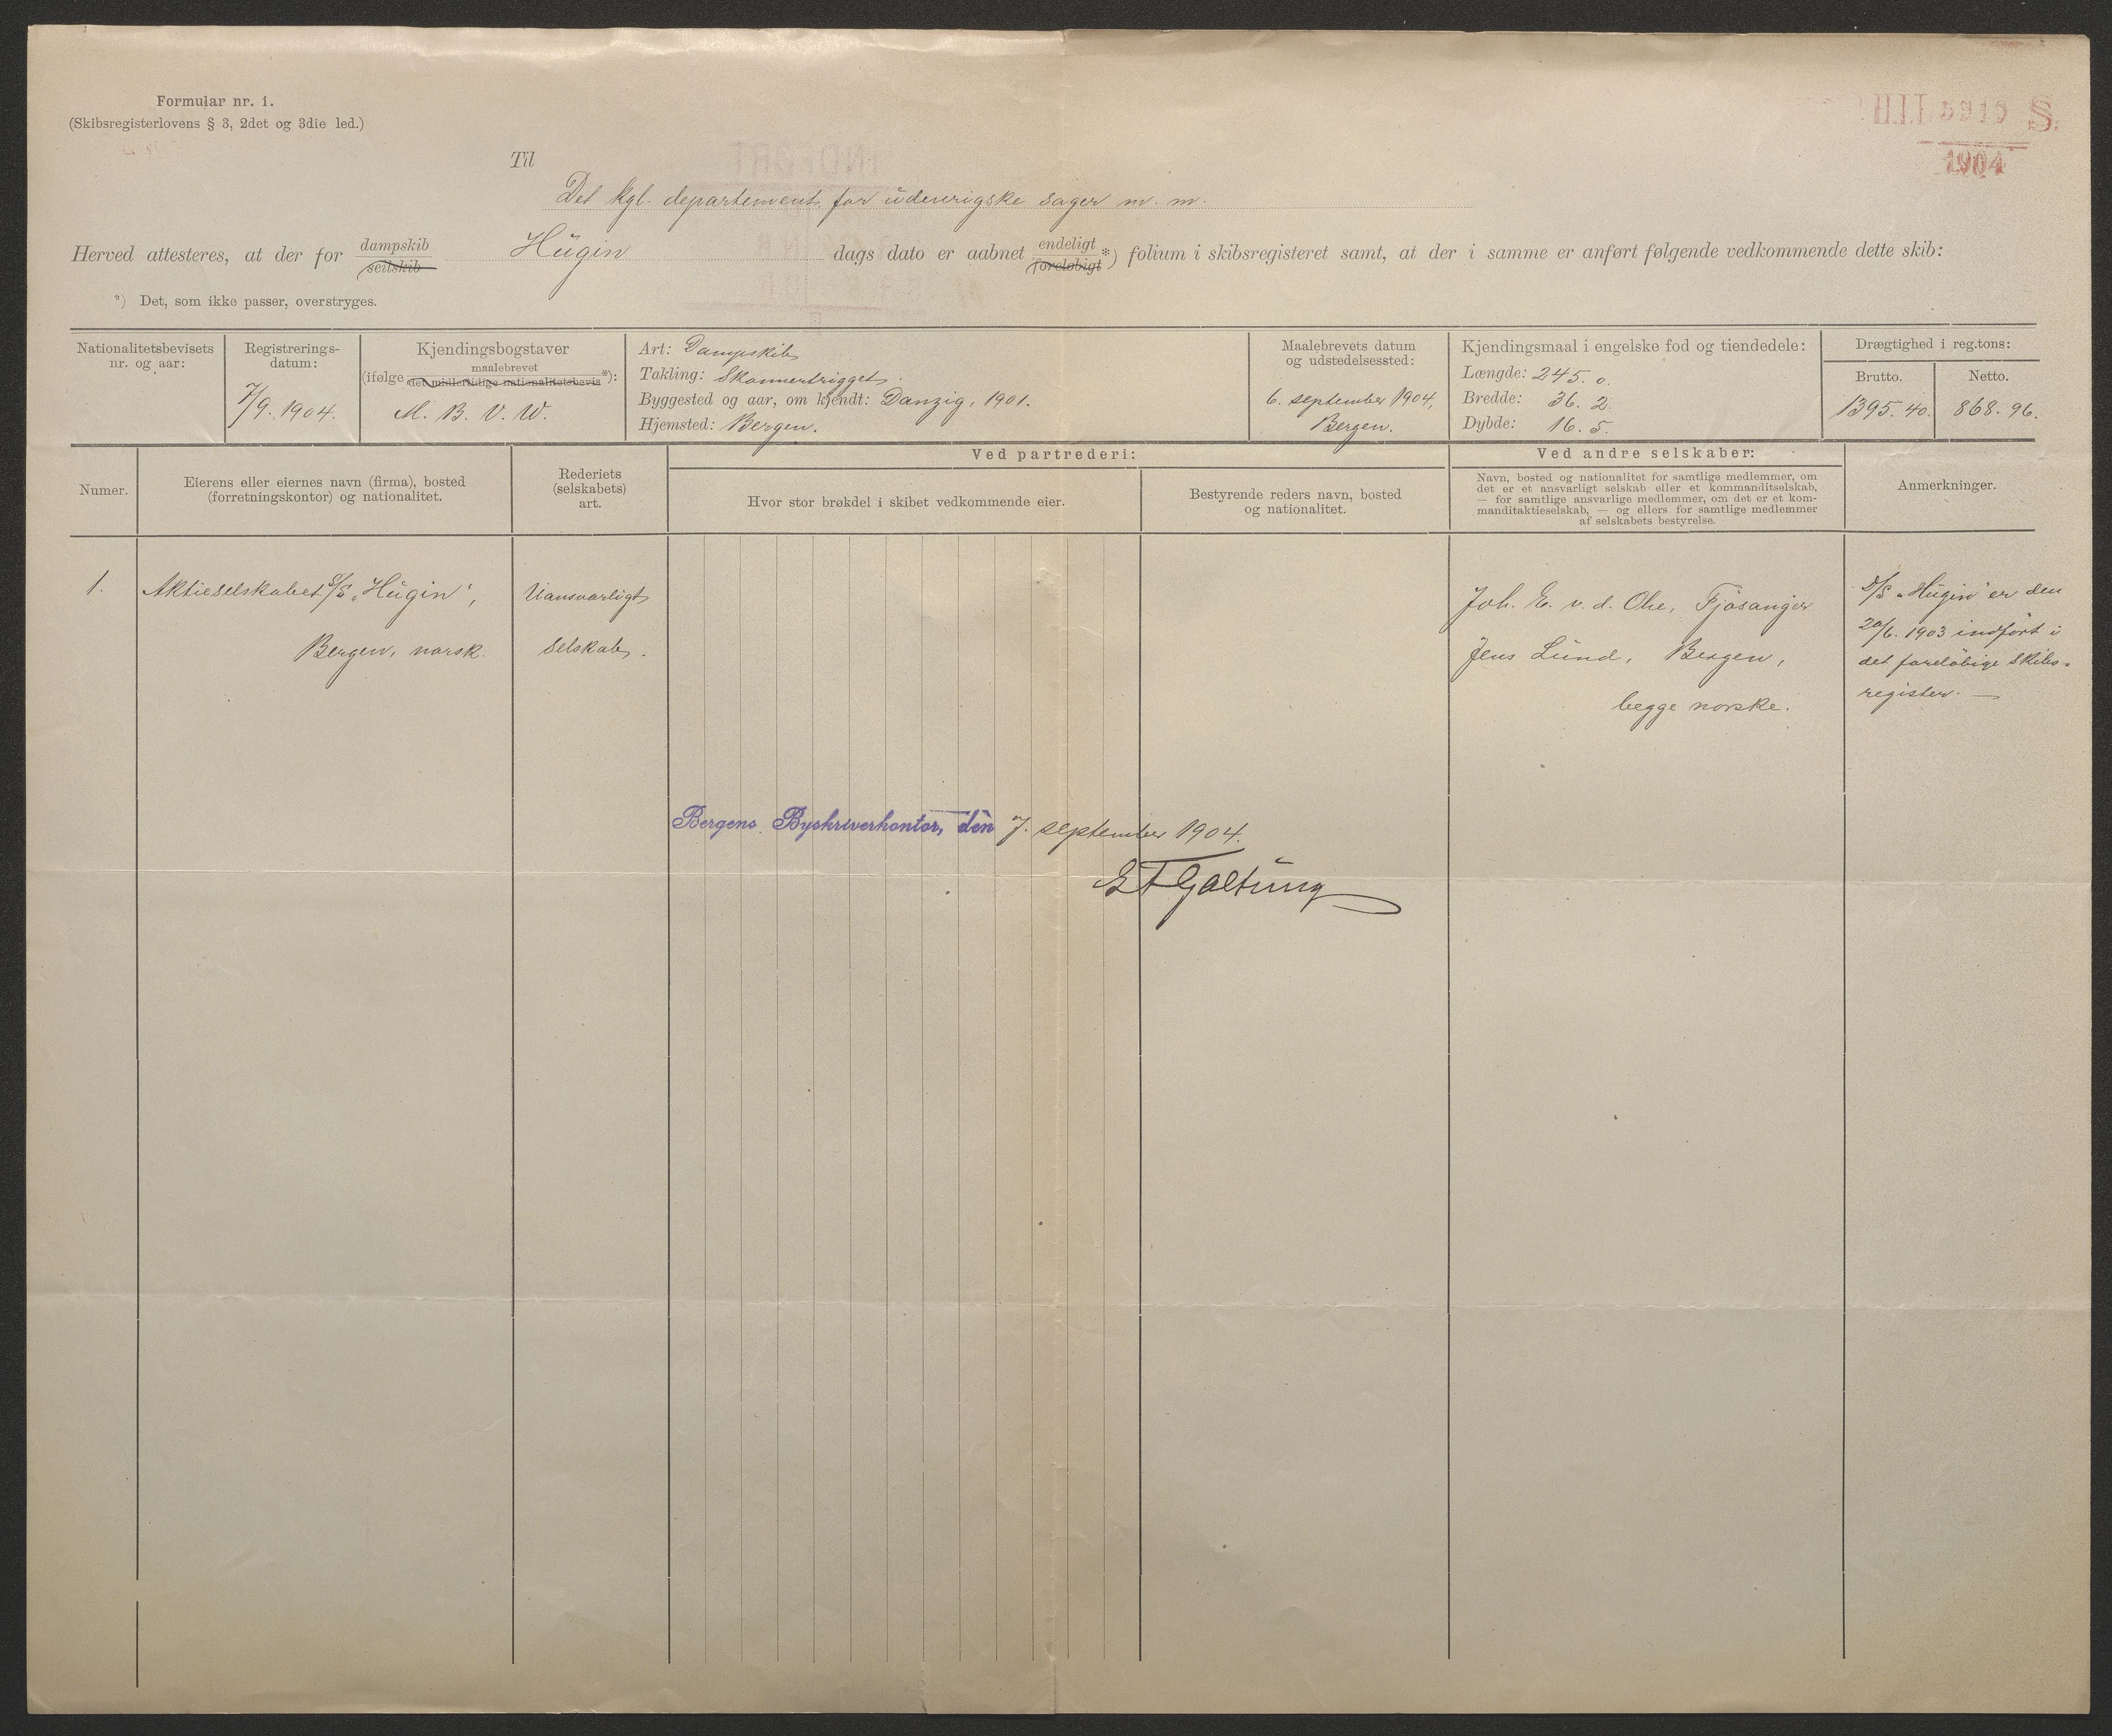 Formular nr. 1.
(Skibsregisterlovens § 3, 2det og 3die led.)
1904
Til
Det kgl. departement for udenrigske sager m. m.
Herved attesteres, at der for dampskib seilskib Hŭgin dags dato er aabnet endeligt foreløbigt *) folium i skibsregisteret samt, at der i samme er anført følgende vedkommende dette skib:
*) Det, som ikke passer, overstryges.
Nationalitetsbevisets nr. og aar:
Registrerings-datum:
7/9. 1904.
Kjendingsbogstaver
(ifølge maalebrevet det midlertidige nationalitetsbevis *):
M. B. V. W.
Art: Dampskib
Takling: Skonnertrigget.
Byggested og aar, om kjendt: Danzig, 1901.
Hjemsted: Bergen.
Maalebrevets datum
og udstedelsessted:
6. september 1904,
Bergen.
Kjendingsmaal i engelske fod og tiendedele:
Længde: 245. 0.
Bredde: 36. 2.
Dybde: 16. 5.
Drægtighed i reg.tons:
Brutto.
1395. 40.
Netto.
868. 96.
Numer.
Eierens eller eiernes navn (firma), bosted
(forretningskontor) og nationalitet.
Rederiets
(selskabets)
art.
Ved partrederi:
Hvor stor brøkdel i skibet vedkommende eier.
Bestyrende reders navn, bosted
og nationalitet.
Ved andre selskaber:
Navn, bosted og nationalitet for samtlige medlemmer, om
det er et ansvarligt selskab eller et kommanditselskab,
— for samtlige ansvarlige medlemmer, om det er et kom-
manditaktieselskab, — og ellers for samtlige medlemmer
af selskabets bestyrelse.
Anmerkninger.
1.
Aktieselskabet S/S „Hŭgin“,
Bergen, norsk.
Uansvarligt
selskab.
Joh. E. v. d. Ohe, Fjøsanger
Jens Lŭnd, Bergen,
begge norske.
D/S „Hŭgin“ er den
20/6. 1903 indført i
det foreløbige skibs-
register. —
Bergens Byskriverkontor, den 7. september 1904.
E F Galtŭng